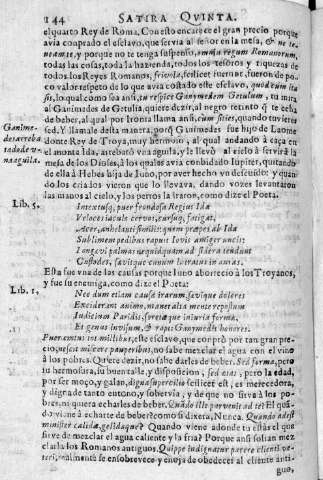 144 SATIRA QVINTA.
el quarto Rey de Roma. Con esto encarece el gran precio porque
auia comprado el esclauo, que seruia al señor en la mesa, & ne te-
neamꝰ, y porque no te tenga suspenso, omnia regum Romanorum,
todas las cosas, toda la hazienda, todos los tesoros y riquezas de
todos los Reyes Romanos, friuola, scilicet fuerunt, fueron de po-
co valor respeto de lo que auia costado este esclauo, quod cum ita
sit, lo qual como sea ansi, tu respice Ganimedem Getulum, tu mira
al Ganimedes de Getulia, quiere dezir, al negro retinto q̃ te echa
de beber, al qual por Ironia llama ansi, cum sities, quando tuuieres
sed. Y llamale desta manera, porq̃ Ganimedes fue hijo de Laome
donte Rey de Troya, muy hermoso, al qual andando à caça en
el monte Ida, arrebatò vna aguila, y lleuò al cielo à seruir à la
mesa de los Dioses, à los quales auia conbidado Iupiter, quitando
de ella à Hebes hija de Iuno, por auer hecho vn descuido: y quan
do los criados vieron que lo lleuaua, dando vozes leuantaron
las manos al cielo, y los perros ladraron, como dize el Poeta.
Ganime-
des arreba
tado de v-
na aguila.
Lib. 5.
Intextusq, puer frondosa Regius Ida
Veloces iaculo ceruos, cursuq, fatigat,
Acer, anhelanti similis: quem præpes ab Ida
Sublimem pedibus rapuit Iouis armiger vncis:
Longæui palmas nequidquam ad sidera tendunt
Custodes, sæuitque canum latratus in auras.
Esta fue vna de las causas porque Iuno aborreciò à los Troyanos,
y fue su enemiga, como dize el Poeta:
Lib. 1.
Nec dum etiam causæ irarum, sæuique dolores
Exciderant animo, manet alta mente repostum
Iudicium Paridis, spretæque iniuria formæ.
Et genus inuisum, & rapti Ganymedis honores.
Puer emtus tot millibus, este esclauo, que comprò por tan gran pre-
cio, nescit miscere pauperibus, no sabe mezclar el agua con el vino
à los pobres. Quiere dezir, no sabe darles de beber. Sed forma, pero
su hermosura, su buen talle, y disposicion, sed ætas, pero la edad,
por ser moço, y galan, digna supercilio scilicet est, es merecedora,
y digna de tanto entono, y soberuia, y de que no sirua à los po-
bres, ni quiera echarles de beber. Quãdo ille peruenit ad te? El quã-
do viene à echarte de beber? como si dixera, Nunca. Quando adest
minister calidæ, gelidæque? Quando viene adonde tu estàs el que
sirue de mezclar el agua caliente y la fria? Porque ansi solian mez-
clarla los Romanos antiguos. Quippe indignatur parere clienti ve-
teri, realmente se ensoberuece y enoja de obedecer al cliente anti-
guo,